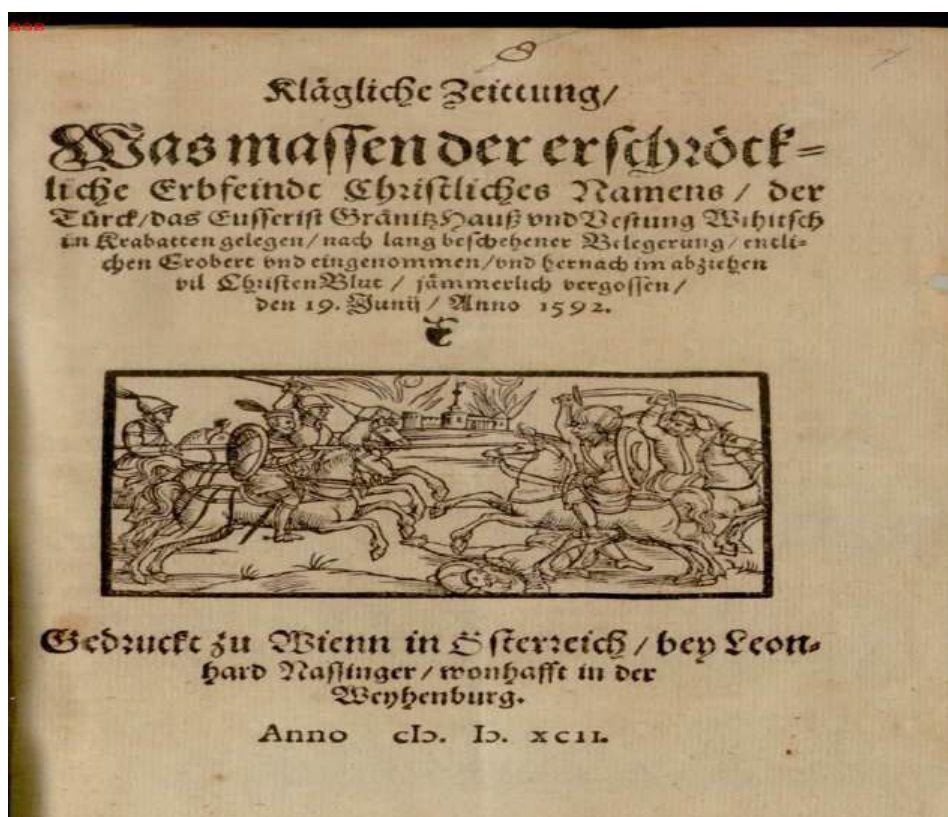 BSB
8
Klägliche Zeittung/
Was massen der erschröck-
liche Erbfeindt Christliches Namens / der
Türck/das Eusserist GränitzHauß vnd Vestung Wihitsch
in Krabatten gelegen/nach lang beschehener Belegerung/entli-
chen Erobert vnd eingenommen/vnd hernach im abziehen
vil ChristenBlut / jämmerlich vergossen/
den 19. Junij / Anno 1592.
Gedruckt zu Wienn in Österreich / bey Leon-
hard Nassinger/wonhafft in der
Weyhenburg.
Anno cIɔ. Iɔ. xcii.